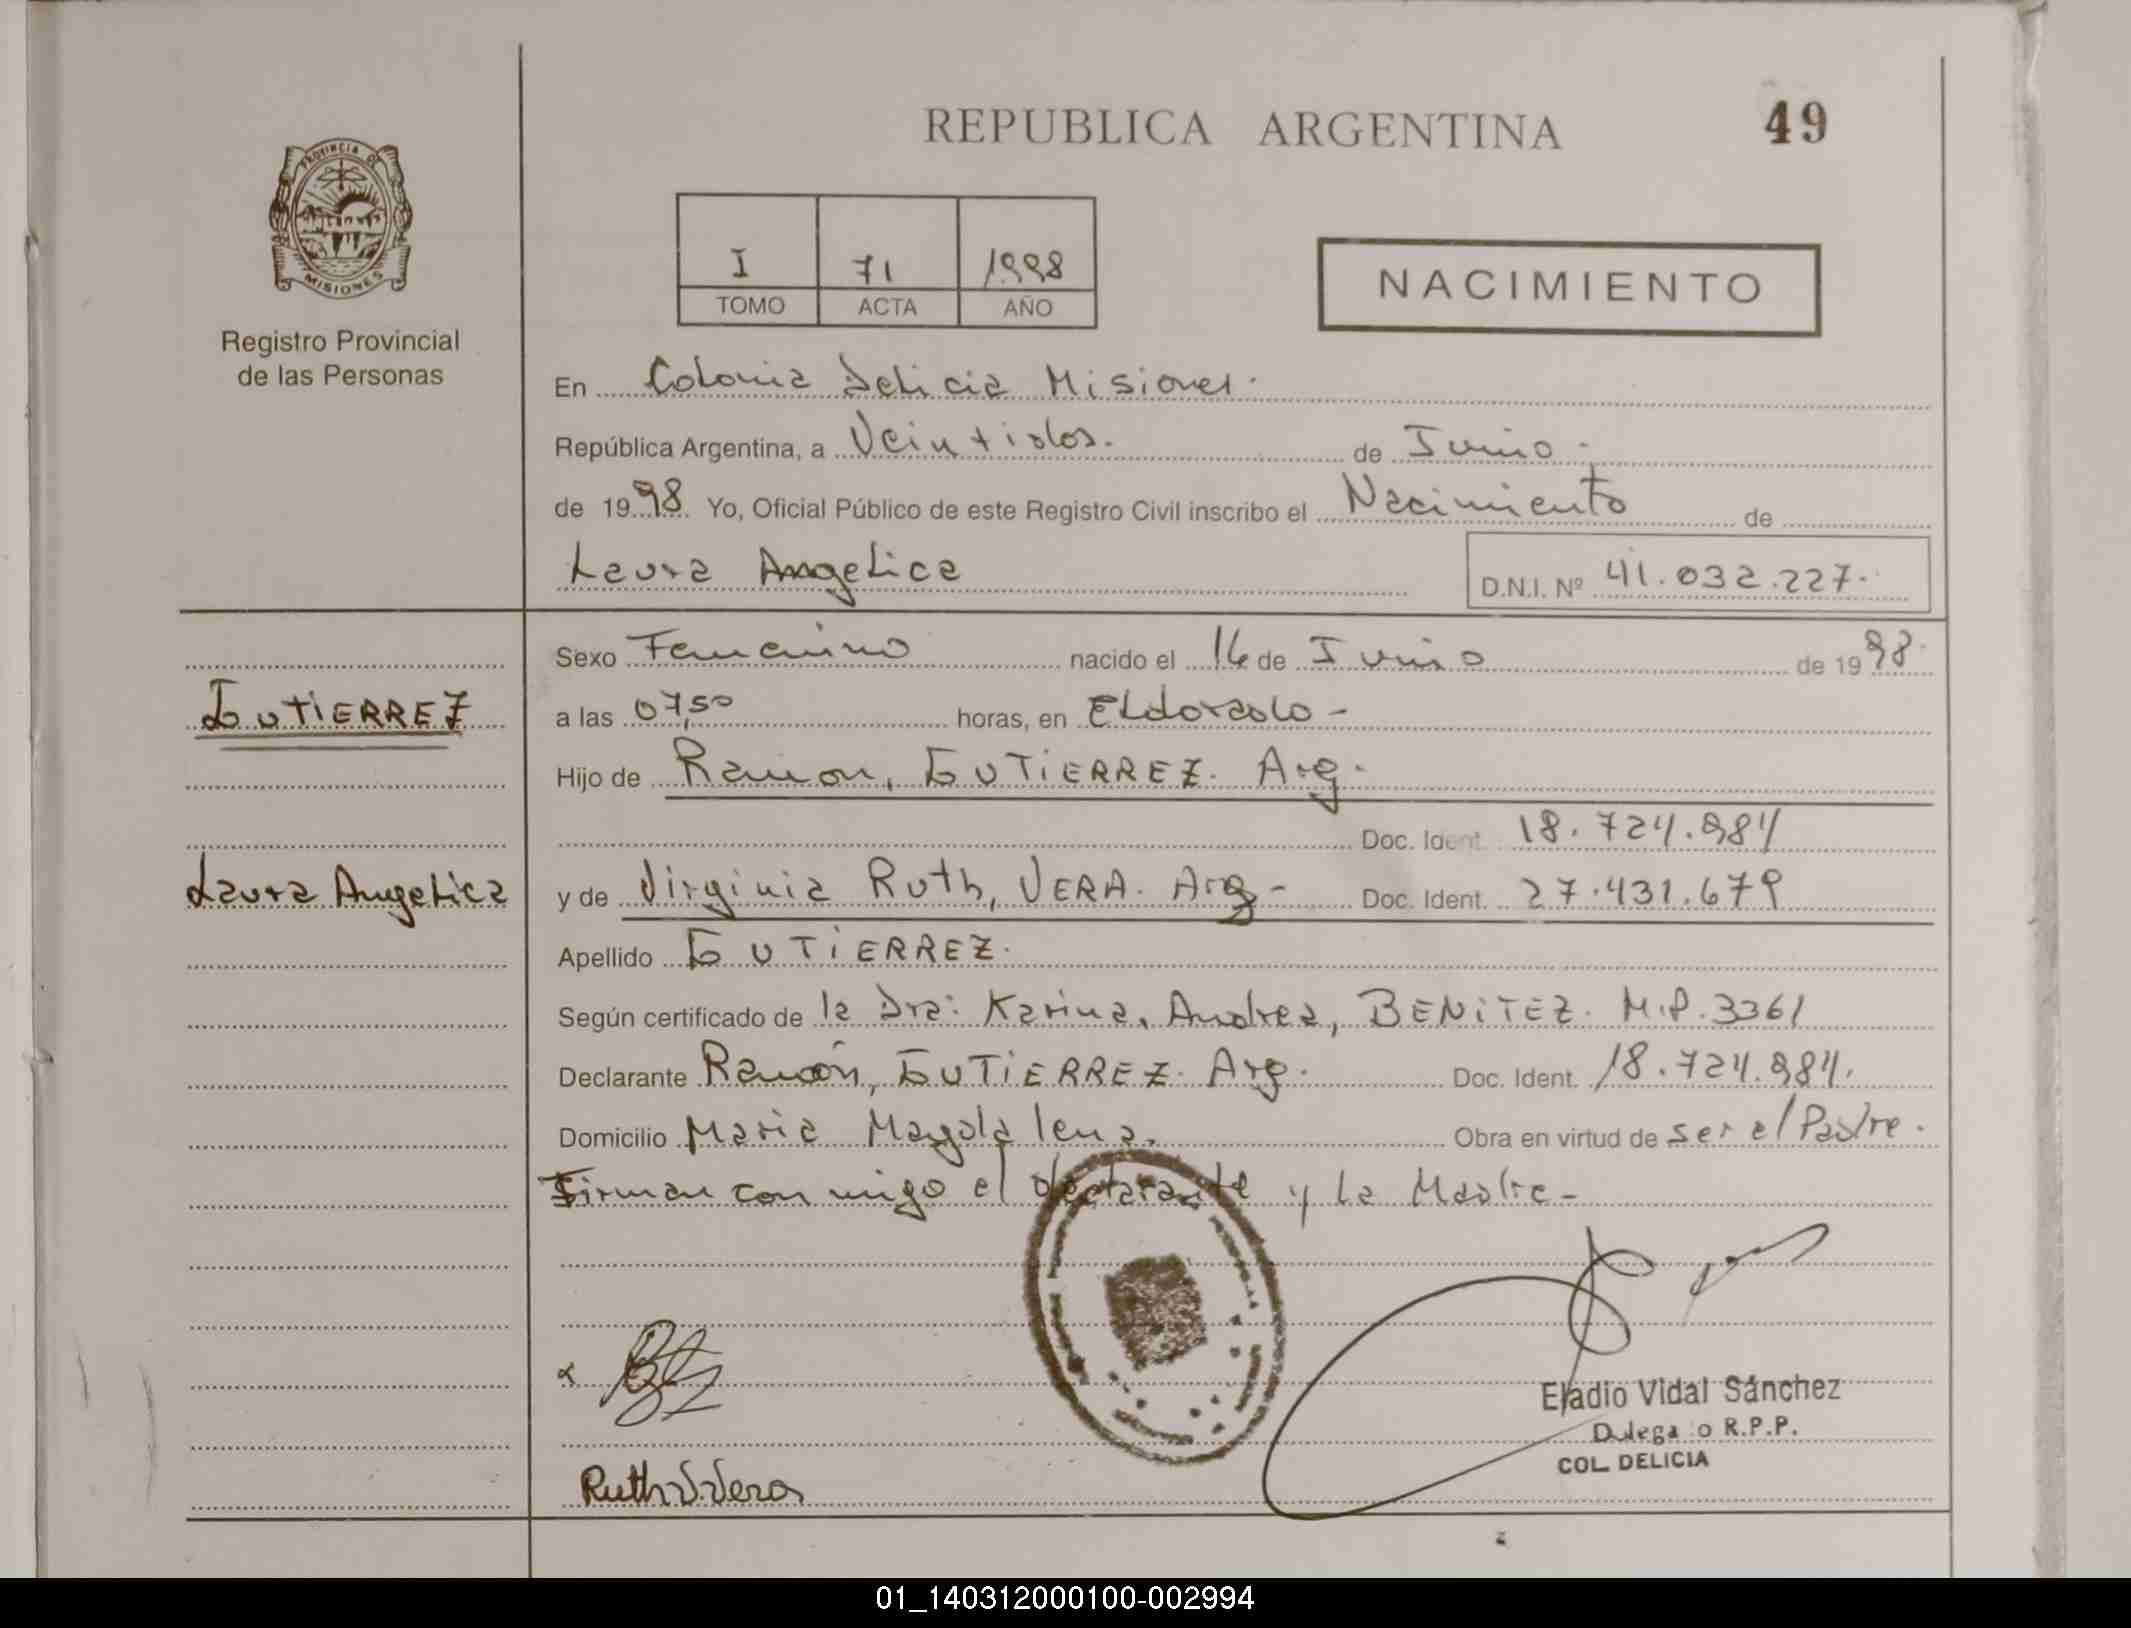 REPUBLICA ARGENTINA
49
PROVINCIA DE
MISIONES
Registro Provincial
de las Personas
I 71 1998
TOMO ACTA AÑO
NACIMIENTO
En Colonia Delicia Misiones.
República Argentina, a Veintidos. de Junio.
de 1998 Yo, Oficial Público de este Registro Civil inscribo el Nacimiento de
Laura Angelica D.N.I. Nº 41.032.227.
Sexo Femenino nacido el 16 de Junio de 1998.
GUTiERREZ
a las 07,50 horas, en Eldorado -
Hijo de Ramon, GUTiERREZ. Arg.
Doc. Ident. 18.724.984
Laura Angelica
y de Virginia Ruth, VERA. Arg - Doc. Ident. 27.431.679
Apellido GUTiERREZ.
Según certificado de la Dra: Karina, Andrea, BENiTEZ. M.P. 3361
Declarante Ramón, GUTiERREZ. Arg. Doc. Ident. 18.724.984.
Domicilio Maria Magdalena. Obra en virtud de ser el Padre.
Firman con migo el declarante y la Madre -
Eladio Vidal Sánchez
Delegado R.P.P.
COL. DELICIA
Ruth V. Vera
01_140312000100-002994